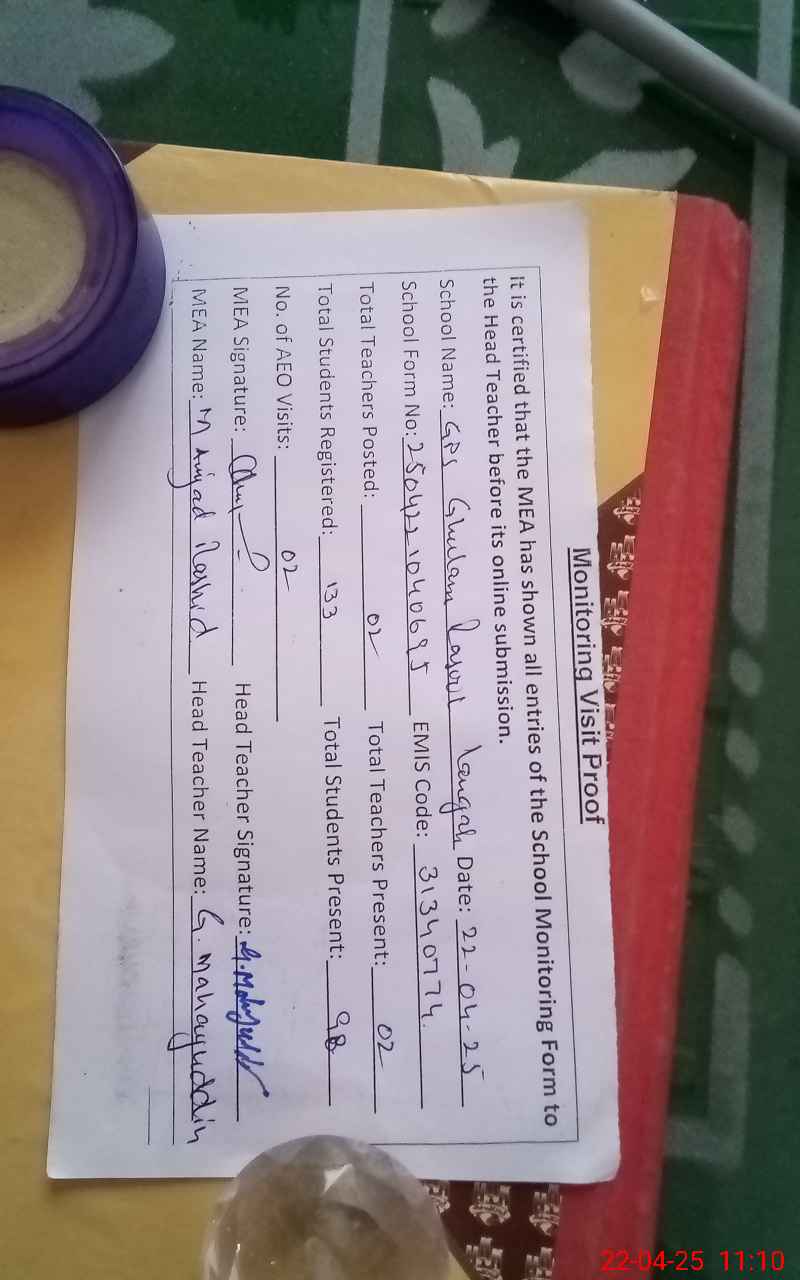 Monitoring Visit Proof
It is certified that the MEA has shown all entries of the School Monitoring Form to
the Head Teacher before its online submission.
School Name: GPS Ghulam Rasool Langah Date: 22-04-25
School Form No: 2504221040695 EMIS Code: 31340774.
Total Teachers Posted: 02 Total Teachers Present: 02
Total Students Registered: 133 Total Students Present: 98
No. of AEO Visits: 02
MEA Signature: Head Teacher Signature:
MEA Name: M Amjad Rashid Head Teacher Name: G. Mahayuddin
22-04-25 11:10